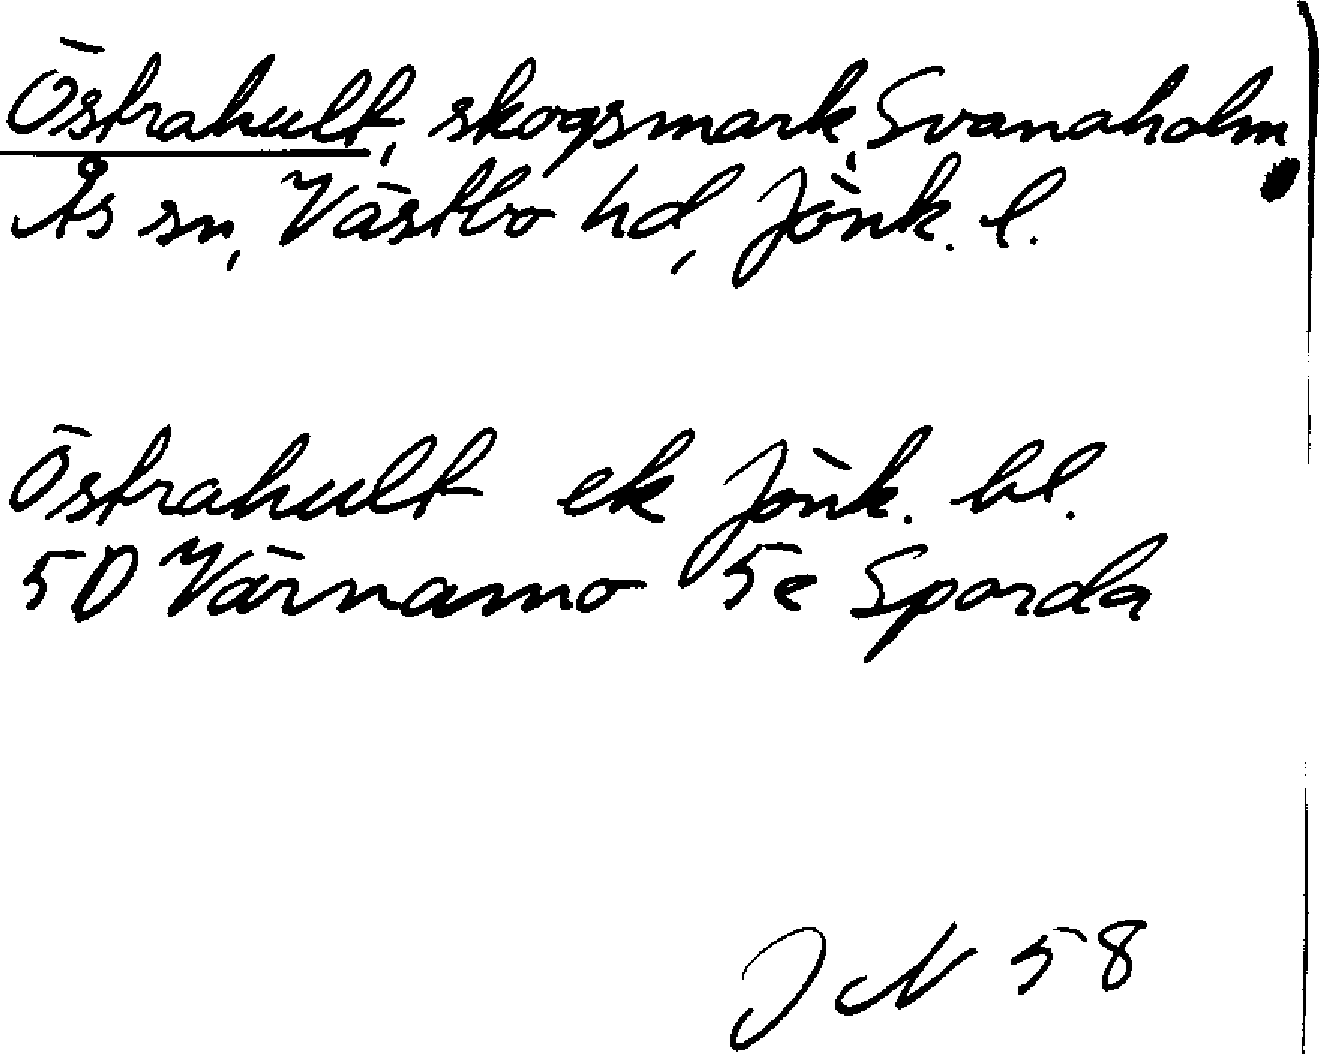 Östrahult, skogsmark, Svanaholm,
Ås sn, Västbo hd, Jönk. l.
Östrahult ek Jönk. bl.
5D Värnamo 5e Sporda
J N 58